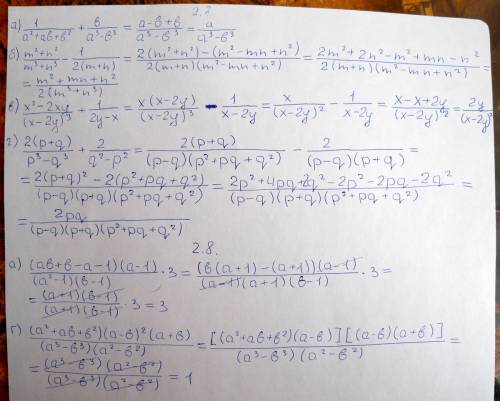 2.7.
а) 1/(a²+ab+b²) + b/(a³-b³) = (a-b+b)/(a³-b³) = a/(a³-b³)
б) (m²+n²)/(m³+n³) - 1/(2(m+n)) = (2(m²+n²)-(m²-mn+n²))/(2(m+n)(m²-mn+n²)) = (2m²+2n²-m²+mn-n²)/(2(m+n)(m²-mn+n²)) =
= (m²+mn+n²)/(2(m³+n³))
в) (x²-2xy)/(x-2y)³ + 1/(2y-x) = (x(x-2y))/(x-2y)³ - 1/(x-2y) = x/(x-2y)² - 1/(x-2y) = (x-x+2y)/(x-2y)² = 2y/(x-2y)²
г) (2(p+q))/(p³-q³) + 2/(q²-p²) = (2(p+q))/((p-q)(p²+pq+q²)) - 2/((p-q)(p+q)) =
= (2(p+q)²-2(p²+pq+q²))/((p-q)(p+q)(p²+pq+q²)) = (2p²+4pq+2q²-2p²-2pq-2q²)/((p-q)(p+q)(p²+pq+q²)) =
= 2pq/((p-q)(p+q)(p²+pq+q²))
2.8.
а) ((ab+b-a-1)(a-1))/((a²-1)(b-1)) · 3 = ((b(a+1)-(a+1))(a-1))/((a-1)(a+1)(b-1)) · 3 =
= ((a+1)(b-1))/((a+1)(b-1)) · 3 = 3
г) ((a²+ab+b²)(a-b)²(a+b))/((a³-b³)(a²-b²)) = ([(a²+ab+b²)(a-b)][(a-b)(a+b)])/((a³-b³)(a²-b²)) =
= ((a³-b³)(a²-b²))/((a³-b³)(a²-b²)) = 1